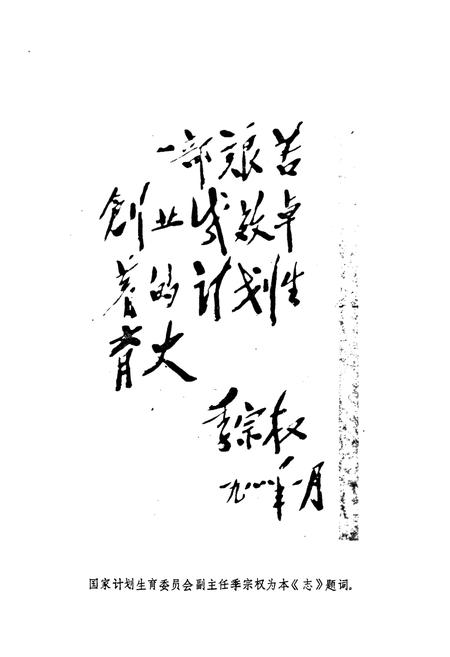 一部艰苦
創业成效卓
著的计划生
育史
季宗权
一九八八年一月
国家计划生育委员会副主任季宗权为本《志》题词。